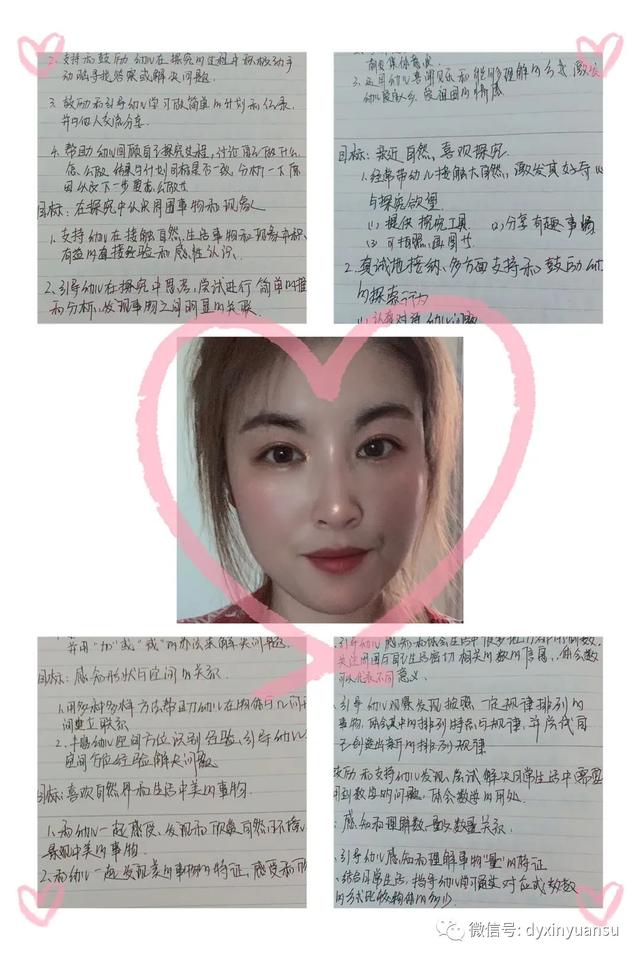 2. 支持和鼓励幼儿在探究的过程中积极动手
动脑寻找答案或解决问题.
3. 鼓励和引导幼儿学习做简单的计划和记录,
并与他人交流分享.
4. 帮助幼儿回顾自己探究过程, 讨论自己做什么
怎么做, 结果与计划目标是否一致, 分析一下原
因以及下一步要怎么做.
目标: 在探究中认识周围事物和现象
1. 支持幼儿在接触自然、生活事物和现象中积
有益的直接经验和感性认识.
2. 引导幼儿在探究中思考, 尝试进行简单的推
和分析, 发现事物之间明显的关联.
3. 运用幼儿喜闻乐和能够理解的方式激发
幼儿爱家乡、爱祖国的情感
目标: 亲近自然, 喜欢探究.
1. 经常带幼儿接触大自然, 激发其好奇心
与探究欲望.
(1) 提供探究工具. (2) 分享有趣事情
(3) 可拍照、画图
2. 真诚地接纳、多方面支持和鼓励幼
的探索行为
(1) 认真对待幼儿问题
并用“加”或“减”的办法来解决问题.
目标: 感知形状与空间的关系.
1. 用多种多样方法帮助幼儿在物体与几何
间建立联系
2. 丰富幼儿空间方位识别经验, 引导幼儿
空间方位经验解决问题
目标: 喜欢自然界和生活中美的事物.
1. 和幼儿一起感受、发现和欣赏自然环境
景观中美的事物.
2. 和幼儿一起发现美的事物的特征, 感受和欣
引导幼儿感知和体会生活中很多地方都用到数,
关注周围与自己生活密切相关的数的信息, 体会数
可以代表不同意义.
引导幼儿观察发现按照一定规律排列的
事物, 体会其中的排列特点与规律, 并尝试自
己创造出新的排列规律
鼓励和支持幼儿发现、尝试解决日常生活中需要
用到数学的问题, 体会数学的用处.
: 感知和理解数、量及数量关系.
引导幼儿感知和理解事物“量”的特征
结合日常生活, 指导幼儿学习通过对应或数数
的方式比较物体的多少.
微信号: dyxinyuansu